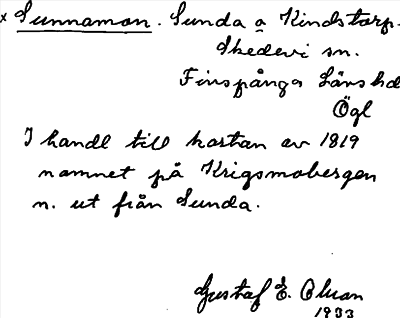 x Sunnamon. Sunda o Kindstorp.
Skedevi sn.
Finspånga Länshd
Ögl
I handl till kartan av 1819
namnet på Krigsmobergen
n. ut från Sunda.
Gustaf E. Olsson
1933